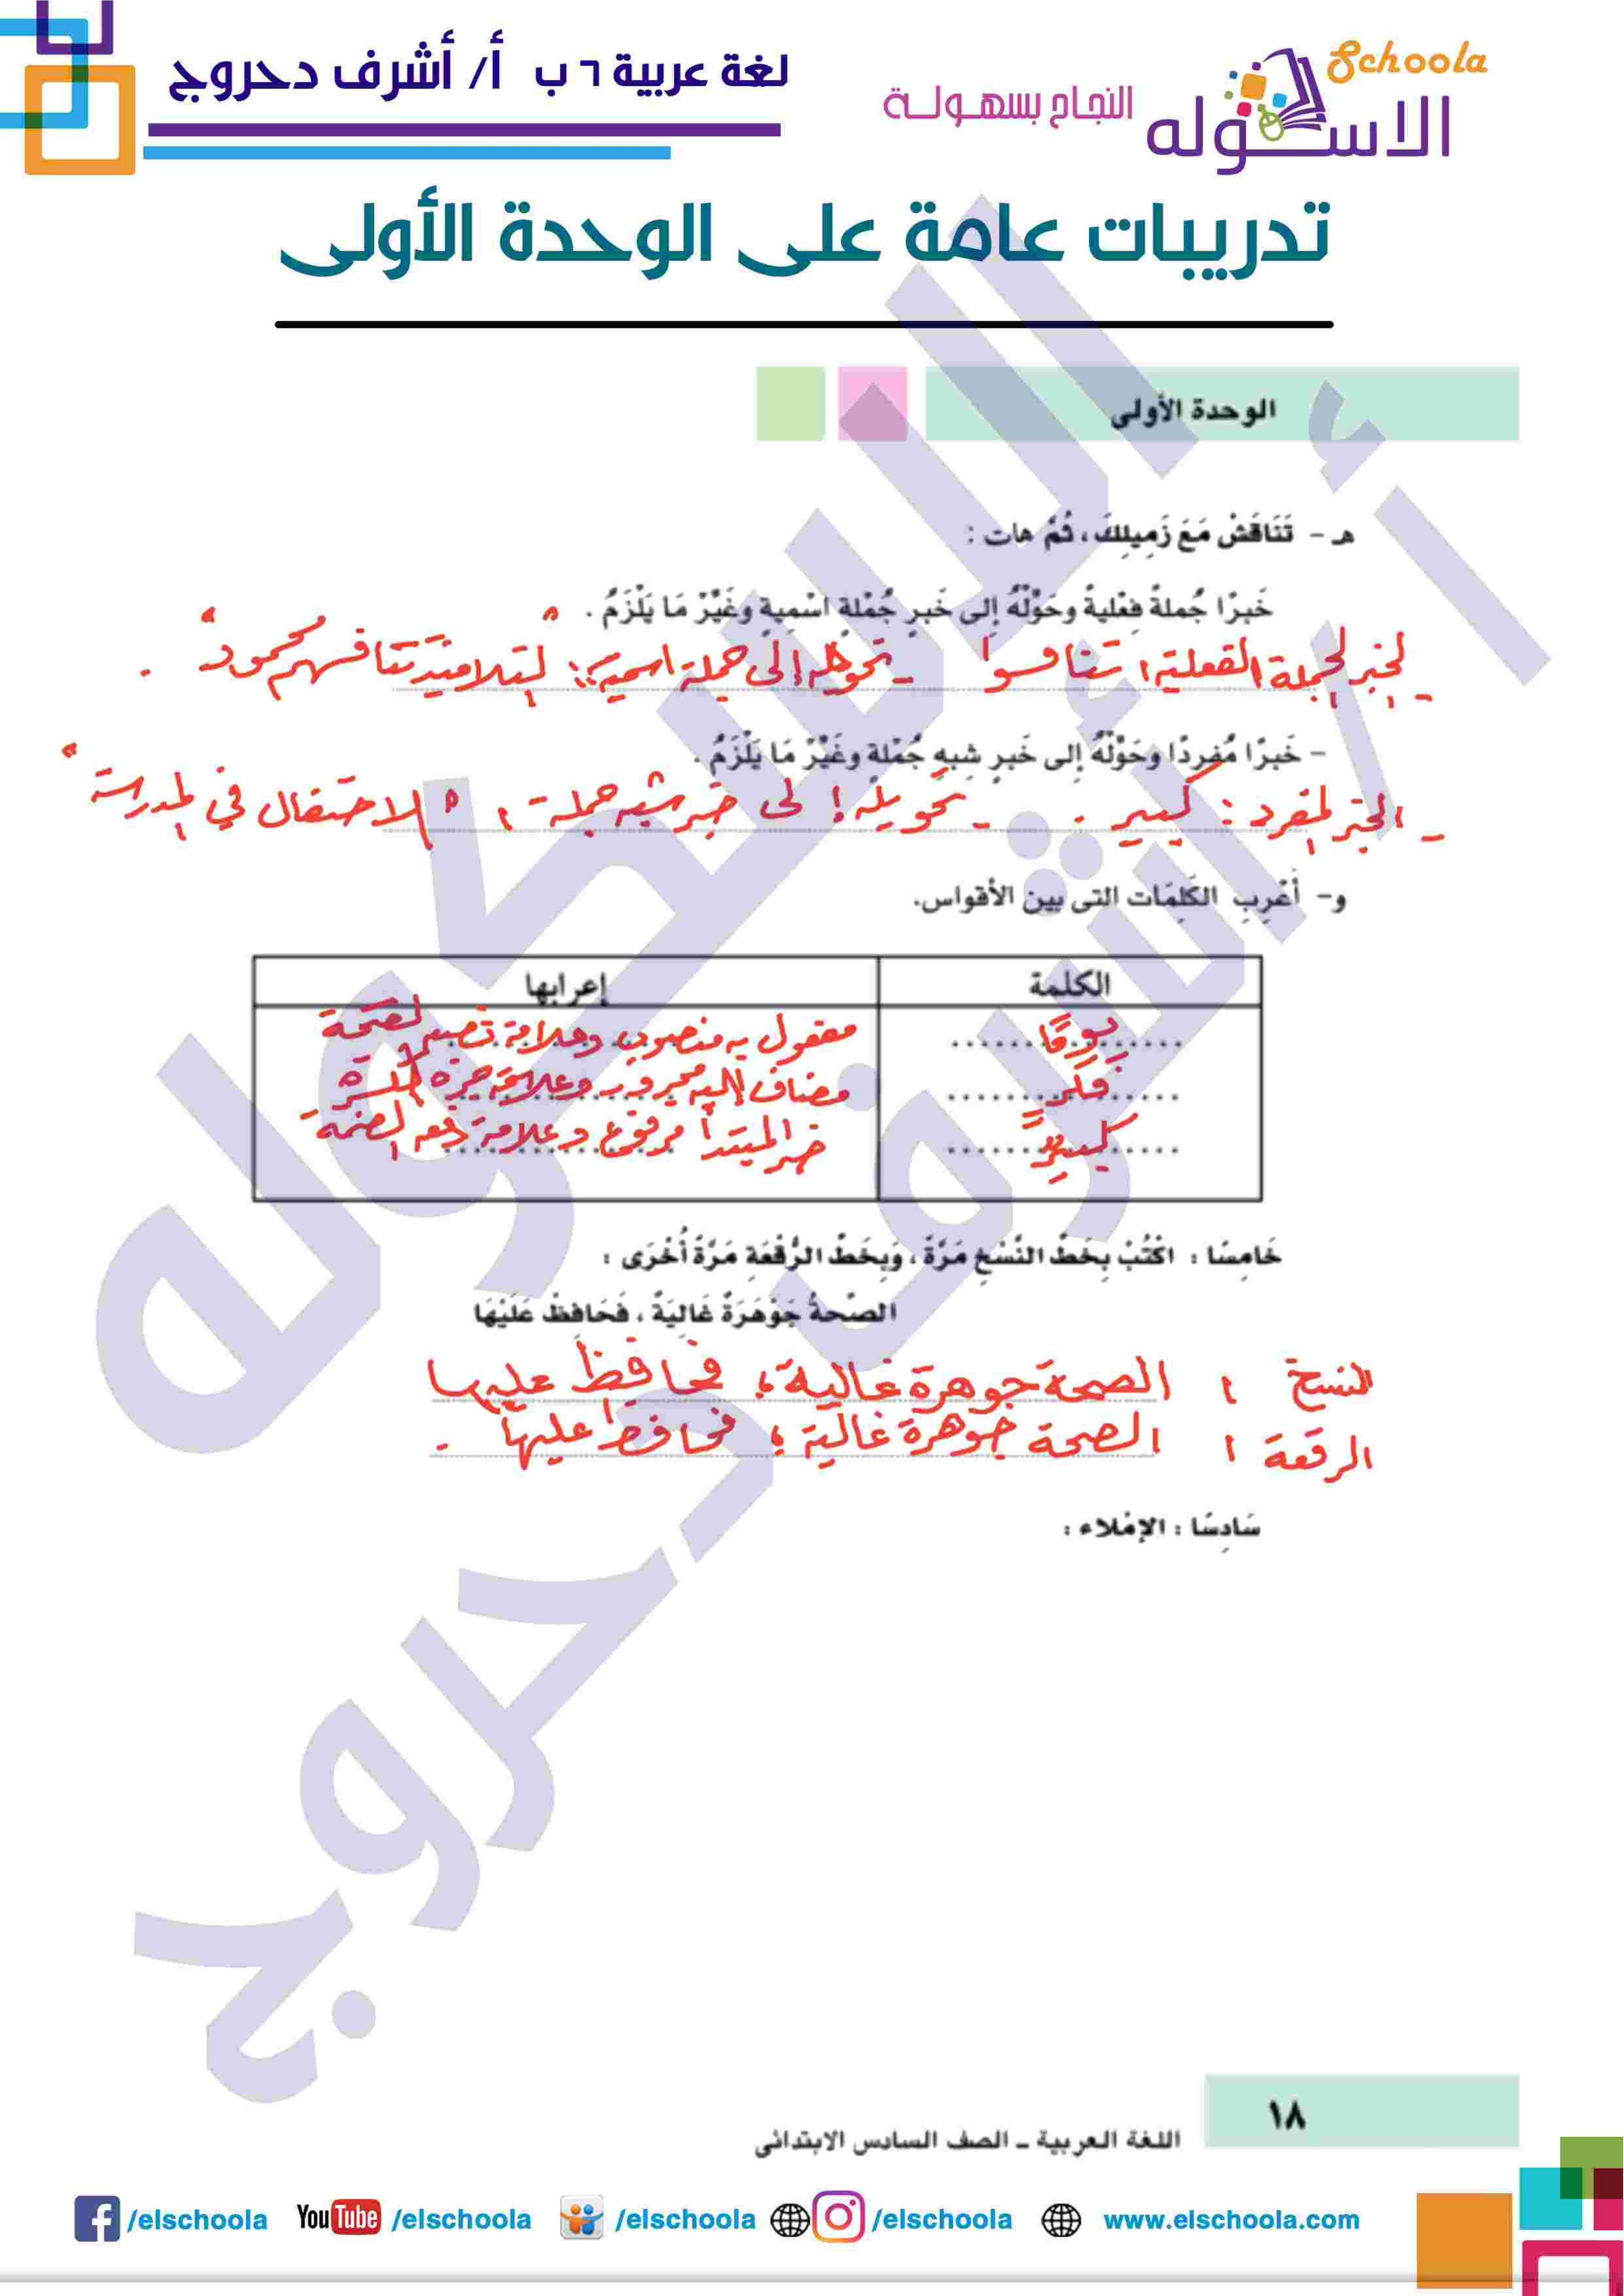 لغة عربية ٦ ب أ/ أشرف دحروج
Schoola
النجاح بسهولة
الاسكوله
تدريبات عامة على الوحدة الأولى
الوحدة الأولى
هـ - تَنَاقَشْ مَعَ زَمِيلِكَ ، ثُمَّ هات :
خَبرًا جُملةً فِعْليةً وحَوِّلْهُ إلى خَبرِ جُمْلةٍ اسْمِيةٍ وغَيِّرْ مَا يَلْزَمُ .
- الخبر الجملة الفعلية : تنافسوا - تحويله إلى جملة اسمية : " التلاميذ تنافسهم محمود " .
- خَبرًا مُفردًا وحَوِّلْهُ إلى خَبرِ شِبهِ جُمْلةٍ وغَيِّرْ مَا يَلْزَمُ .
- الخبر المفرد : كبير . - تحويله إلى خبر شبه جملة : " الاحتفال في المدرسة "
و- أَعْرِبِ الكَلِمَات التى بين الأقواس.
الكلمة إعرابها
يومًا مفعول به منصوب وعلامة نصبه الفتحة
فكر مضاف إليه مجرور وعلامة جره الكسرة
كبيرٌ خبر المبتدأ مرفوع وعلامة رفعه الضمة
خَامِسًا : اكْتُبْ بِخَطِّ النَّسْخِ مَرَّةً ، وَبِخَطِّ الرُّقْعَةِ مَرَّةً أُخْرَى :
الصِّحةُ جَوْهَرَةٌ غَالِيَةٌ ، فَحَافِظْ عَلَيْهَا
النسخ : الصحة جوهرة غالية ؛ فحافظ عليها
الرقعة : الصحة جوهرة غالية ؛ فحافظ عليها .
سَادِسًا : الإمْلاء :
١٨
اللغة العربية - الصف السادس الابتدائى
/elschoola YouTube /elschoola /elschoola /elschoola www.elschoola.com
أ / أشرف دحروج
الاسكوله